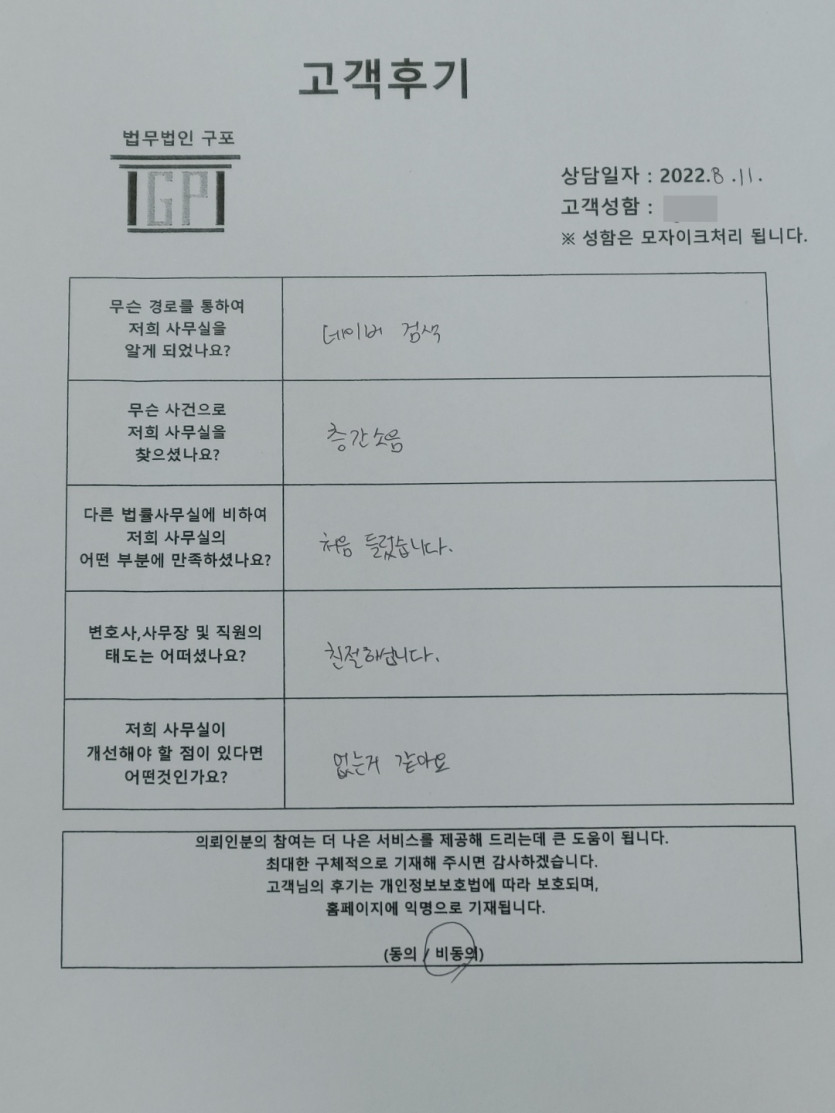 고객후기
법무법인 구포
GP
상담일자 : 2022.8.11.
고객성함 :
※ 성함은 모자이크처리 됩니다.
무슨 경로를 통하여
저희 사무실을
알게 되었나요?
네이버 검색
무슨 사건으로
저희 사무실을
찾으셨나요?
층간소음
다른 법률사무실에 비하여
저희 사무실의
어떤 부분에 만족하셨나요?
처음 들렀습니다.
변호사,사무장 및 직원의
태도는 어떠셨나요?
친절하십니다.
저희 사무실이
개선해야 할 점이 있다면
어떤것인가요?
없는거 같아요
의뢰인분의 참여는 더 나은 서비스를 제공해 드리는데 큰 도움이 됩니다.
최대한 구체적으로 기재해 주시면 감사하겠습니다.
고객님의 후기는 개인정보보호법에 따라 보호되며,
홈페이지에 익명으로 기재됩니다.
(동의 / 비동의)